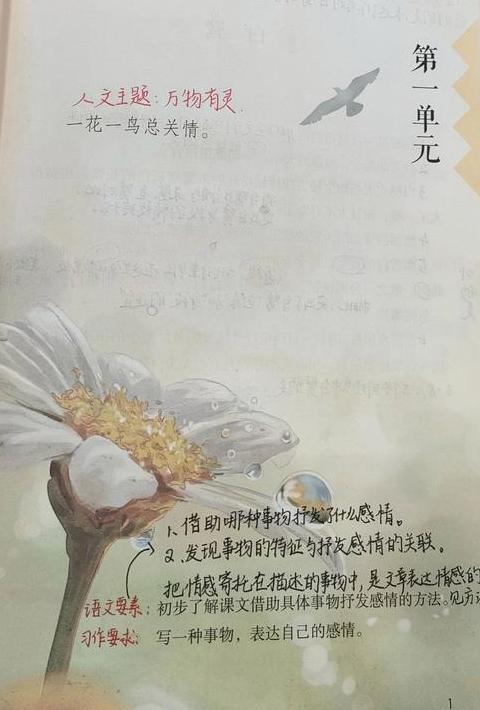 第一单元
人文主题：万物有灵
一花一鸟总关情。
1、借助哪种事物抒发了什么感情。
2、发现事物的特征与抒发感情的关联。
把情感寄托在描述的事物中，是文章表达情感的
语文要素：初步了解课文借助具体事物抒发感情的方法。见方
习作要求：写一种事物，表达自己的感情。
1